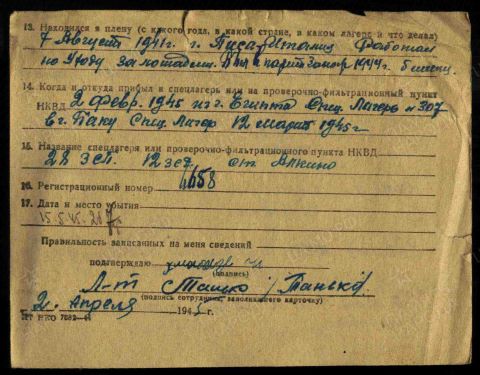 13. Находился в плену (с какого года, в какой стране, в каком лагере и что делал)
7 Августа 1941г. г. Писа-Италия Работал
по Уходу за лошадьми. Был в партизанах 1944 г. 5 месяц.
14. Когда и откуда прибыл в спецлагерь или на проверочно-фильтрационный пункт
НКВД 2 февр. 1945 из г. Египта Спец. Лагерь № 307
в г. Баку Спец. Лагер 12 марта 1945 г
15. Название спецлагеря или проверочно-фильтрационного пункта НКВД
28 ЗСП. 12 зсд. ст. Алкино
16. Регистрационный номер 4658
17. Дата и место убытия
15.5.45.
Правильность записанных на меня сведений
подтверждаю
(подпись)
Л-т Танько /Танько/
(подпись сотрудника, заполняющего карточку)
2. Апреля 1945 г.
НКО 7082-44